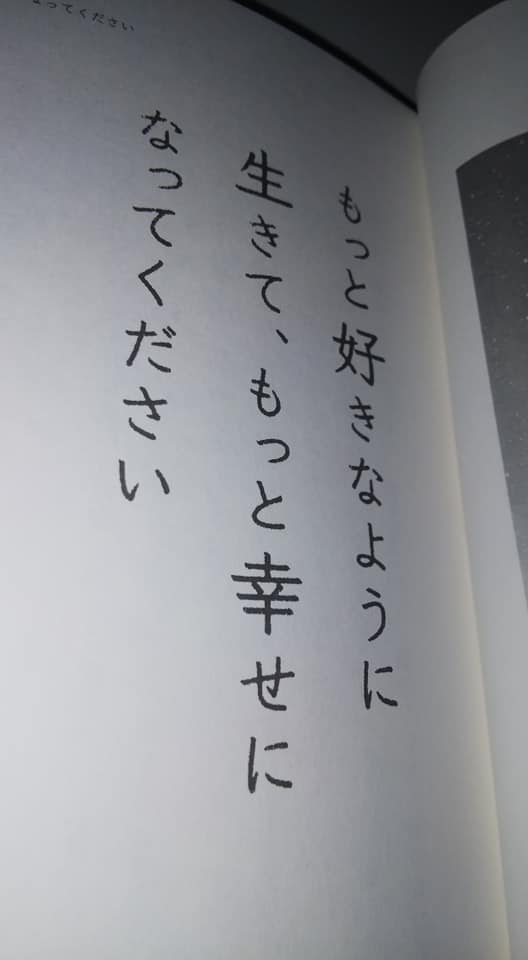 なってください
もっと好きなように
生きて、もっと幸せに
なってください